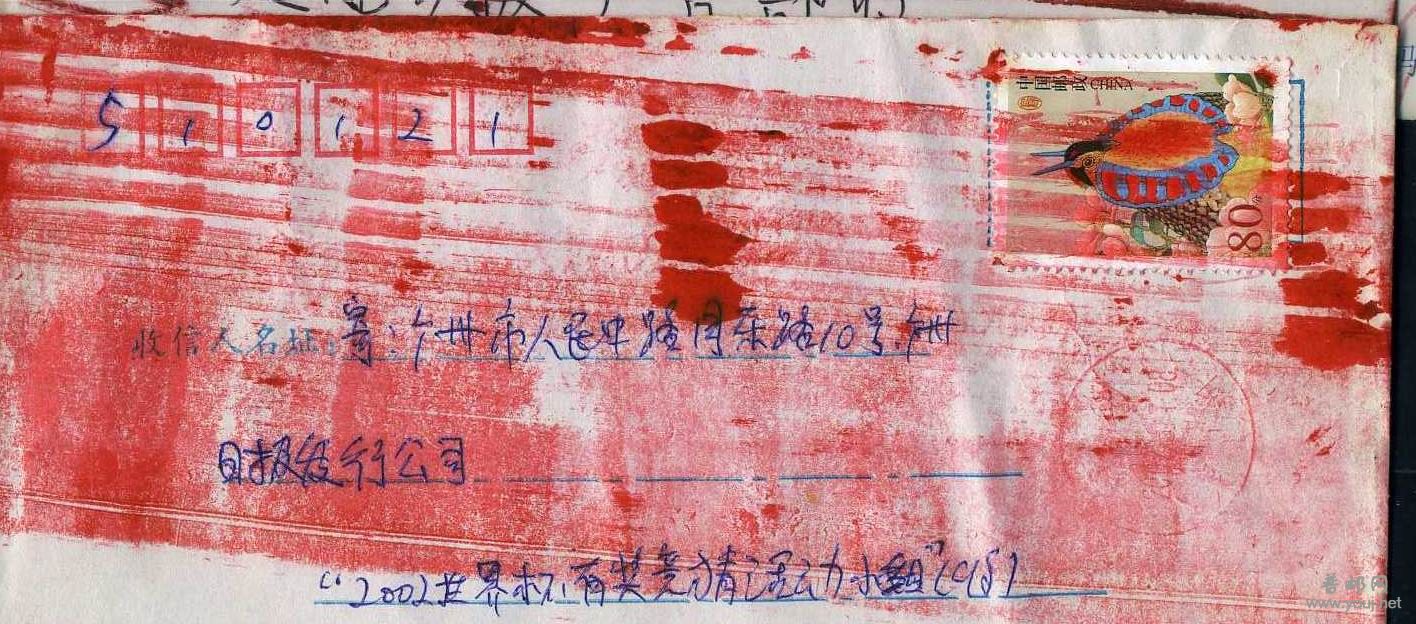 510121
中国邮政 CHINA
80分
收信人名址:寄:广州市人民中路同乐路10号,广州
日报发行公司
"2002世界杯有奖竞猜活动小组"(收)
普邮网
www.youji.net